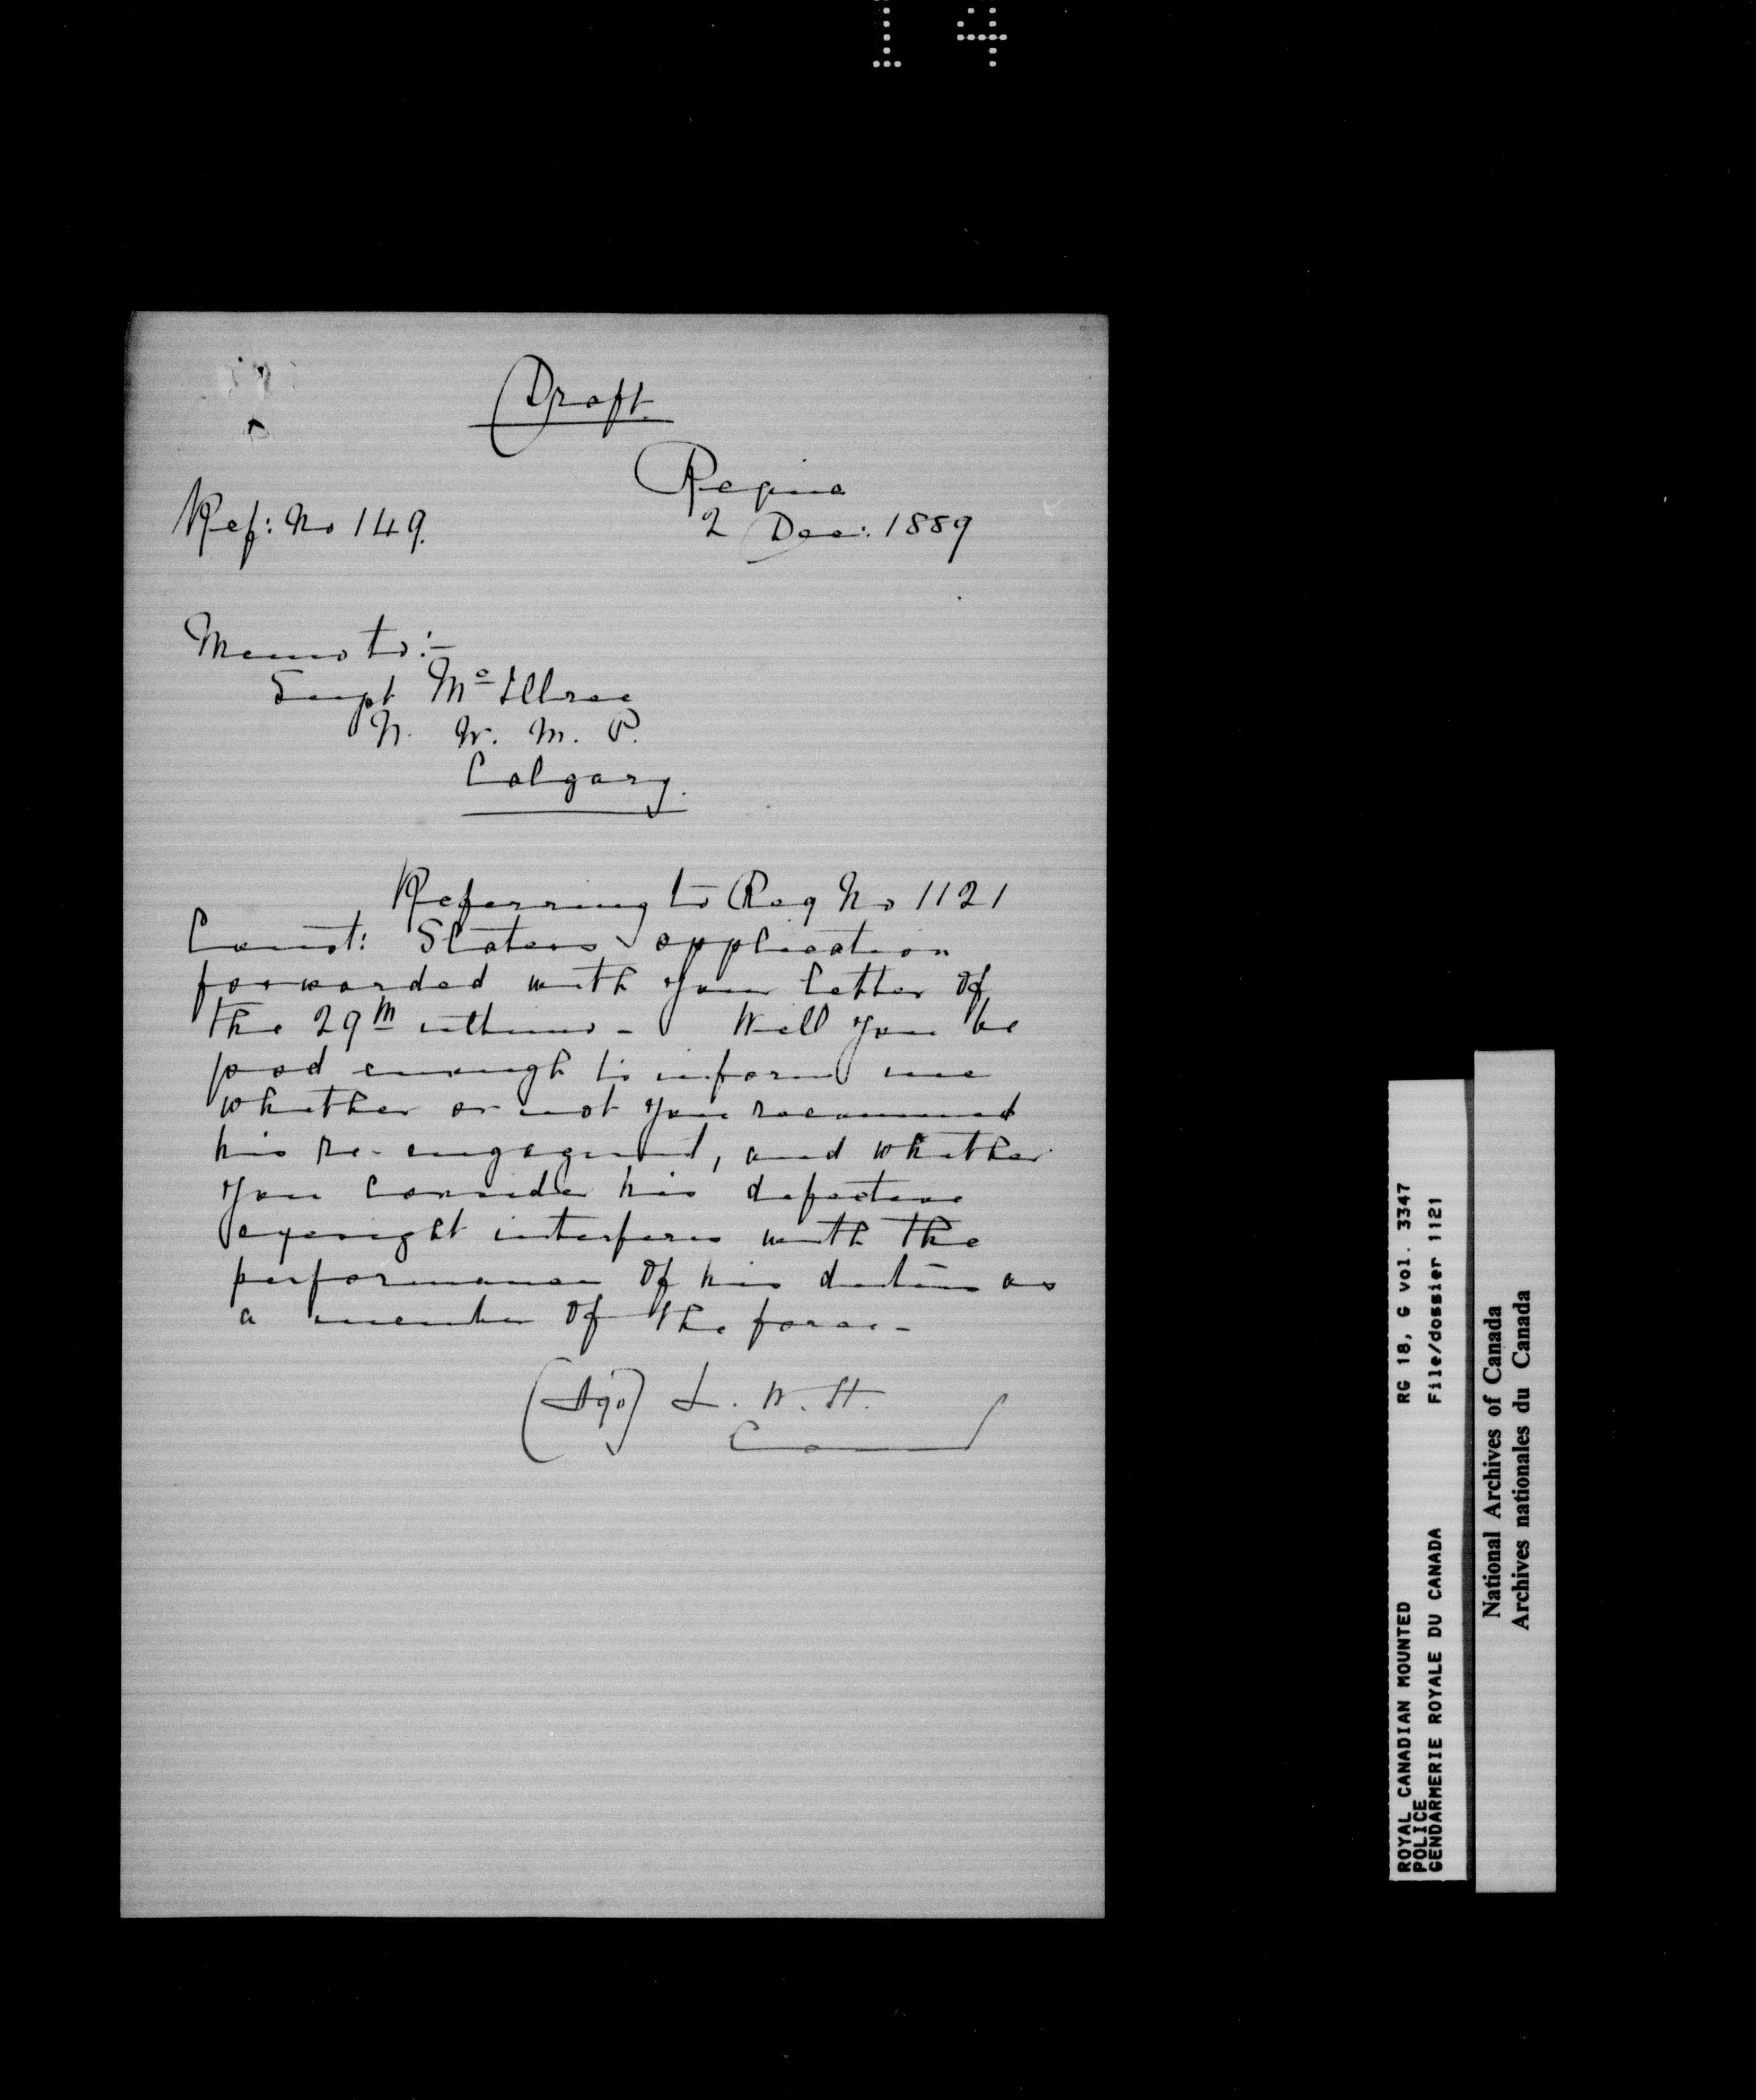 14
Draft.
Regina
Ref: No 149.
2 Dec: 1889
Memo to:-
Supt Mc Illree
N. W. M. P.
Calgary.
Referring to Reg No 1121
Const: Slaters application
forwarded with your letter of
the 29th ultimo - Will you be
good enough to inform me
whether or not you recommend
his re-engagement, and whether
you consider his defective
eyesight interferes with the
performance of his duties as
a member of the force -
(Sgd) L. W. H.
Comm
ROYAL CANADIAN MOUNTED
POLICE
GENDARMERIE ROYALE DU CANADA
RG 18, G vol. 3347
File/dossier 1121
National Archives of Canada
Archives nationales du Canada